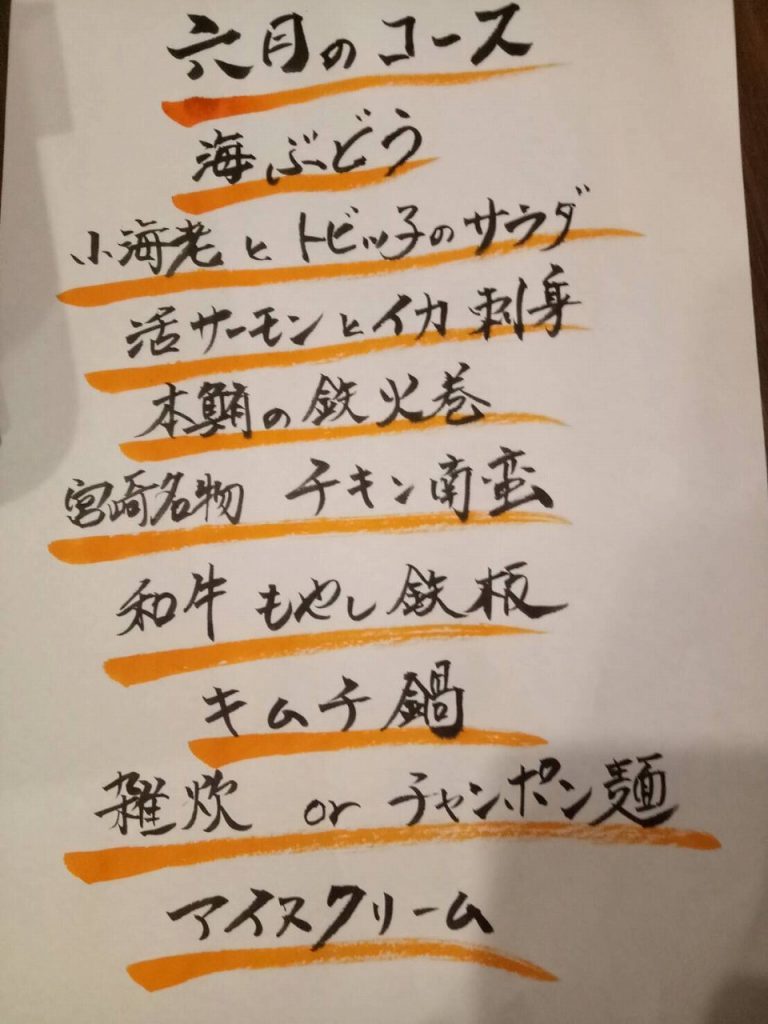 六月のコース
海ぶどう
小海老とトビッ子のサラダ
活サーモンとイカ刺身
本鮪の鉄火巻
宮崎名物 チキン南蛮
和牛もやし鉄板
キムチ鍋
雑炊 or チャンポン麺
アイスクリーム